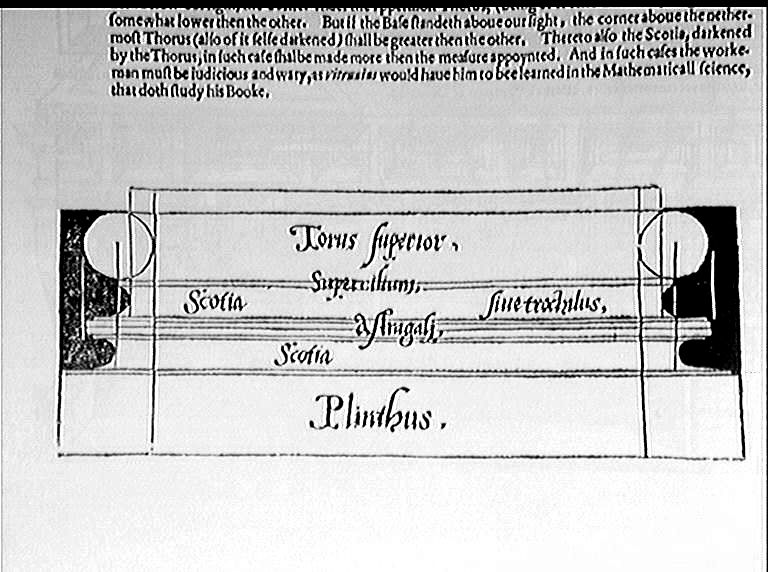 somewhat lower then the other. But if the Base standeth aboue our sight, the corner aboue the nether-
most Thorus (also of it selfe darkened) shall be greater then the other. Thereto also the Scotia, darkened
by the Thorus, in such case shalbe made more then the measure appoynted. And in such cases the worke-
man must be iudicious and wary, as Vitruuius would haue him to bee learned in the Mathematicall science,
that doth study his Booke.
Torus superior.
Supercilium.
Scotia siue trochilus.
Astragali.
Scotia
Plinthus.